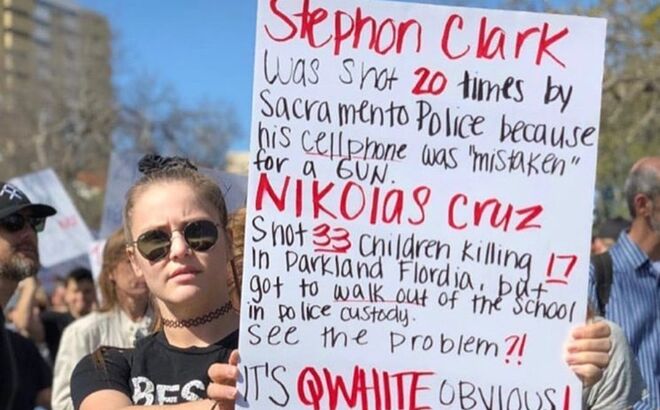 Stephon Clark
was shot 20 times by
Sacramento Police because
his cellphone was "mistaken"
for a GUN.
NIKOlAS Cruz
Shot 33 Children killing 17
in Parkland Flordia, but
got to walk out of the school
in police custody.
see the problem?!
IT'S QWHITE OBVIOUS!
BES